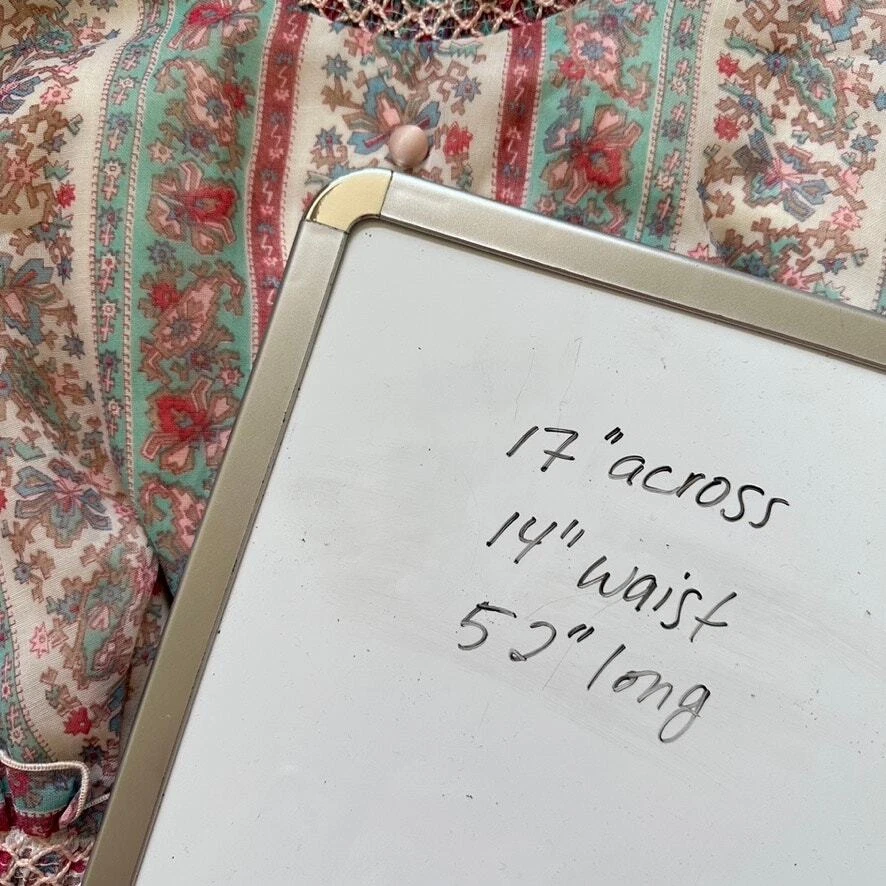 17" across
14" waist
52" long